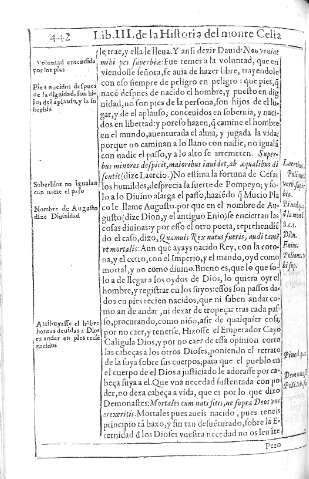 442 Lib.III. de la Historia del monte Celia
le trae, y ella le lleua. Y ansi dezir Dauid: Non veniat
mihi pes superbiæ: Fue temer a la voluntad, que en
viendose señora, se auia de hazer libre, trayendole
con eso siempre de peligro en peligro: que pies, q̃
nacẽ despues de nacido el hombre, y puesto en dig
nidad, no son pies de la persona, son hijos de el lu-
gar, y de el aplauso, conceuidos en soberuia, y naci-
dos en libertad: y por eso hazen, q̃ camine el hombre
en el mundo, auenturada el alma, y jugada la vida:
porque no caminan a lo llano con nadie, no iguala
con nadie el passo, y a lo alto se arremeten. Super-
bus minores despicit, maioribus inuidet, ab æqualibus dis
sentit (dize Laercio.) No estima la fortuna de Cesar
los humildes, desprecia la suerte de Pompeyo; y so-
lo a lo Diuino alarga el passo, hazẽdo q̃ Mutio Pla
co le llame Augusto. por que en el nombre de Au-
gusto (dize Dion, y el antiguo Enio) se encierran las
cosas diuinas: y por esso el otro poeta, reprehendiẽ
do el caso, dizo, Quamuis Rex natus fueris, audi tamẽ
vt mortalis: Aun que ayays nacido Rey, con la coro-
na, y el cetro, con el Imperio, y el mando, oyd como
mortal, y no como diuino. Bueno es, que lo que so-
lo a de llegar a los oydos de Dios, lo quiera oyr el
hombre, y registrar en los suyos: essos son passos da-
dos en pies recien nacidos, que ni saben andar co-
mo an de andar, ni dexar de tropezar tras cada pas-
so, procurando, como niño, asir de qualquier cosa,
por no caer, y tenerse. Hizosse el Emperador Cayo
Caligula Dios, y por no caer de essa opinion corta
las cabeças a los otros Dioses, poniendo el retrato
de la suya sobre sus cuerpos, para que el pueblo en
el cuerpo de el Dios ajusticiado le adorasse por ca-
beça suya a el. Que vna necedad sustentada con po
der, no dexa cabeça a vida, que es por lo que dizo
Demonastes: Mortales cum natis sitis, ne supra Deos vos
erexeritis. Mortales pues aueis nacido, pues teneis
principio tã baxo, y sin tan desuenturado, sobre la E-
ternidad d los Dioses vuestra necedad no os leuãte
Pero
Pies nacidos despues
Soberbios no igualan
con nadie el paso
Nombre de Augusto
dize Diuinidad